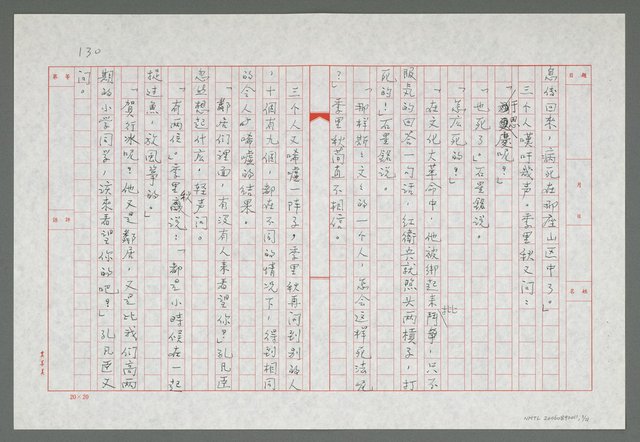 130
息份回來，病死在那座山区中了。」
三个人嘆吁幾声。季里秋又问：
「行思呢？」
「也死了。」石墨銀说。
「怎应死的？」
「在文化大革命中，他被绑起来鬥争，只不
批
服气的回答一句话，红衛兵就照头两槓子，打
死的！」石墨銀说。
「那样斯斯文文的一个人，怎会这样死法呢
？」季里秋简直不相信。
三个人又唏嘘一阵子。季里秋再问到别的人
，十個有九個，都在不同的情况下，得到相同
的令人唏嘘的结果。
「鄰居们裡面，有没有人来看望你？」孔凡匡
忽然想起什应，轻声问。
「有两位。」季里秋说：「都是小時候在一起
捉过魚，放風箏的。」
「賀行冰呢？他又是鄰居，又是比我们高两
期的小学同学，该來看望你的吧！」孔凡匡又
问。
題目
月
日
姓名
等第
評語
20×20
NMTL 20060890001, 1/4